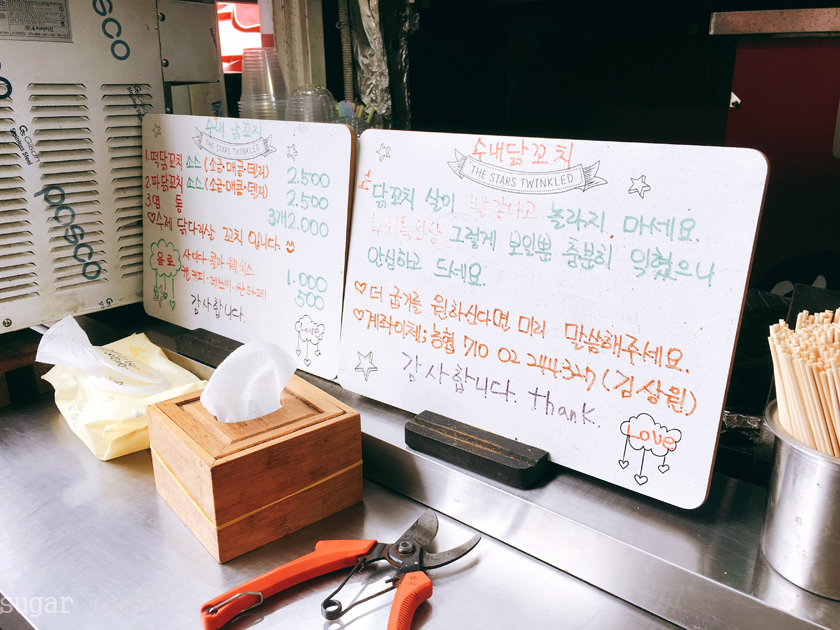 posco
posco
posco
수내 닭꼬치
THE STARS TWINKLED
1. 떡닭꼬치 소스 (소금·매콤·데리) 2.500
2. 파닭꼬치 소스 (소금·매콤·데리) 2.500
3. 염통 3개 2.000
♡수제 닭다리살 꼬치 입니다.
음료
사이다 콜라 1.000
500
감사합니다.
Love
수내닭꼬치
THE STARS TWINKLED
닭꼬치 살이 놀라지 마세요.
그렇게 보일뿐 충분히 익혔으니
안심하고 드세요.
♡더 굽기를 원하신다면 미리 말씀해주세요.
♡계좌이체; 농협 710 02 244327 (김상원)
감사합니다. thank.
LOVE
sugar